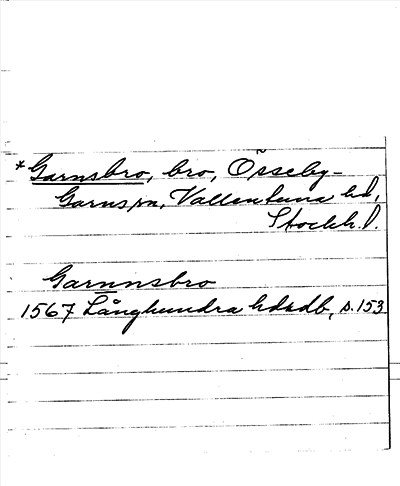 *Garnsbro, bro, Össeby-
Garns sn, Vallentuna hd,
Stockh. l.
Garnnsbro
1567 Långhundra hdsdb, s. 153